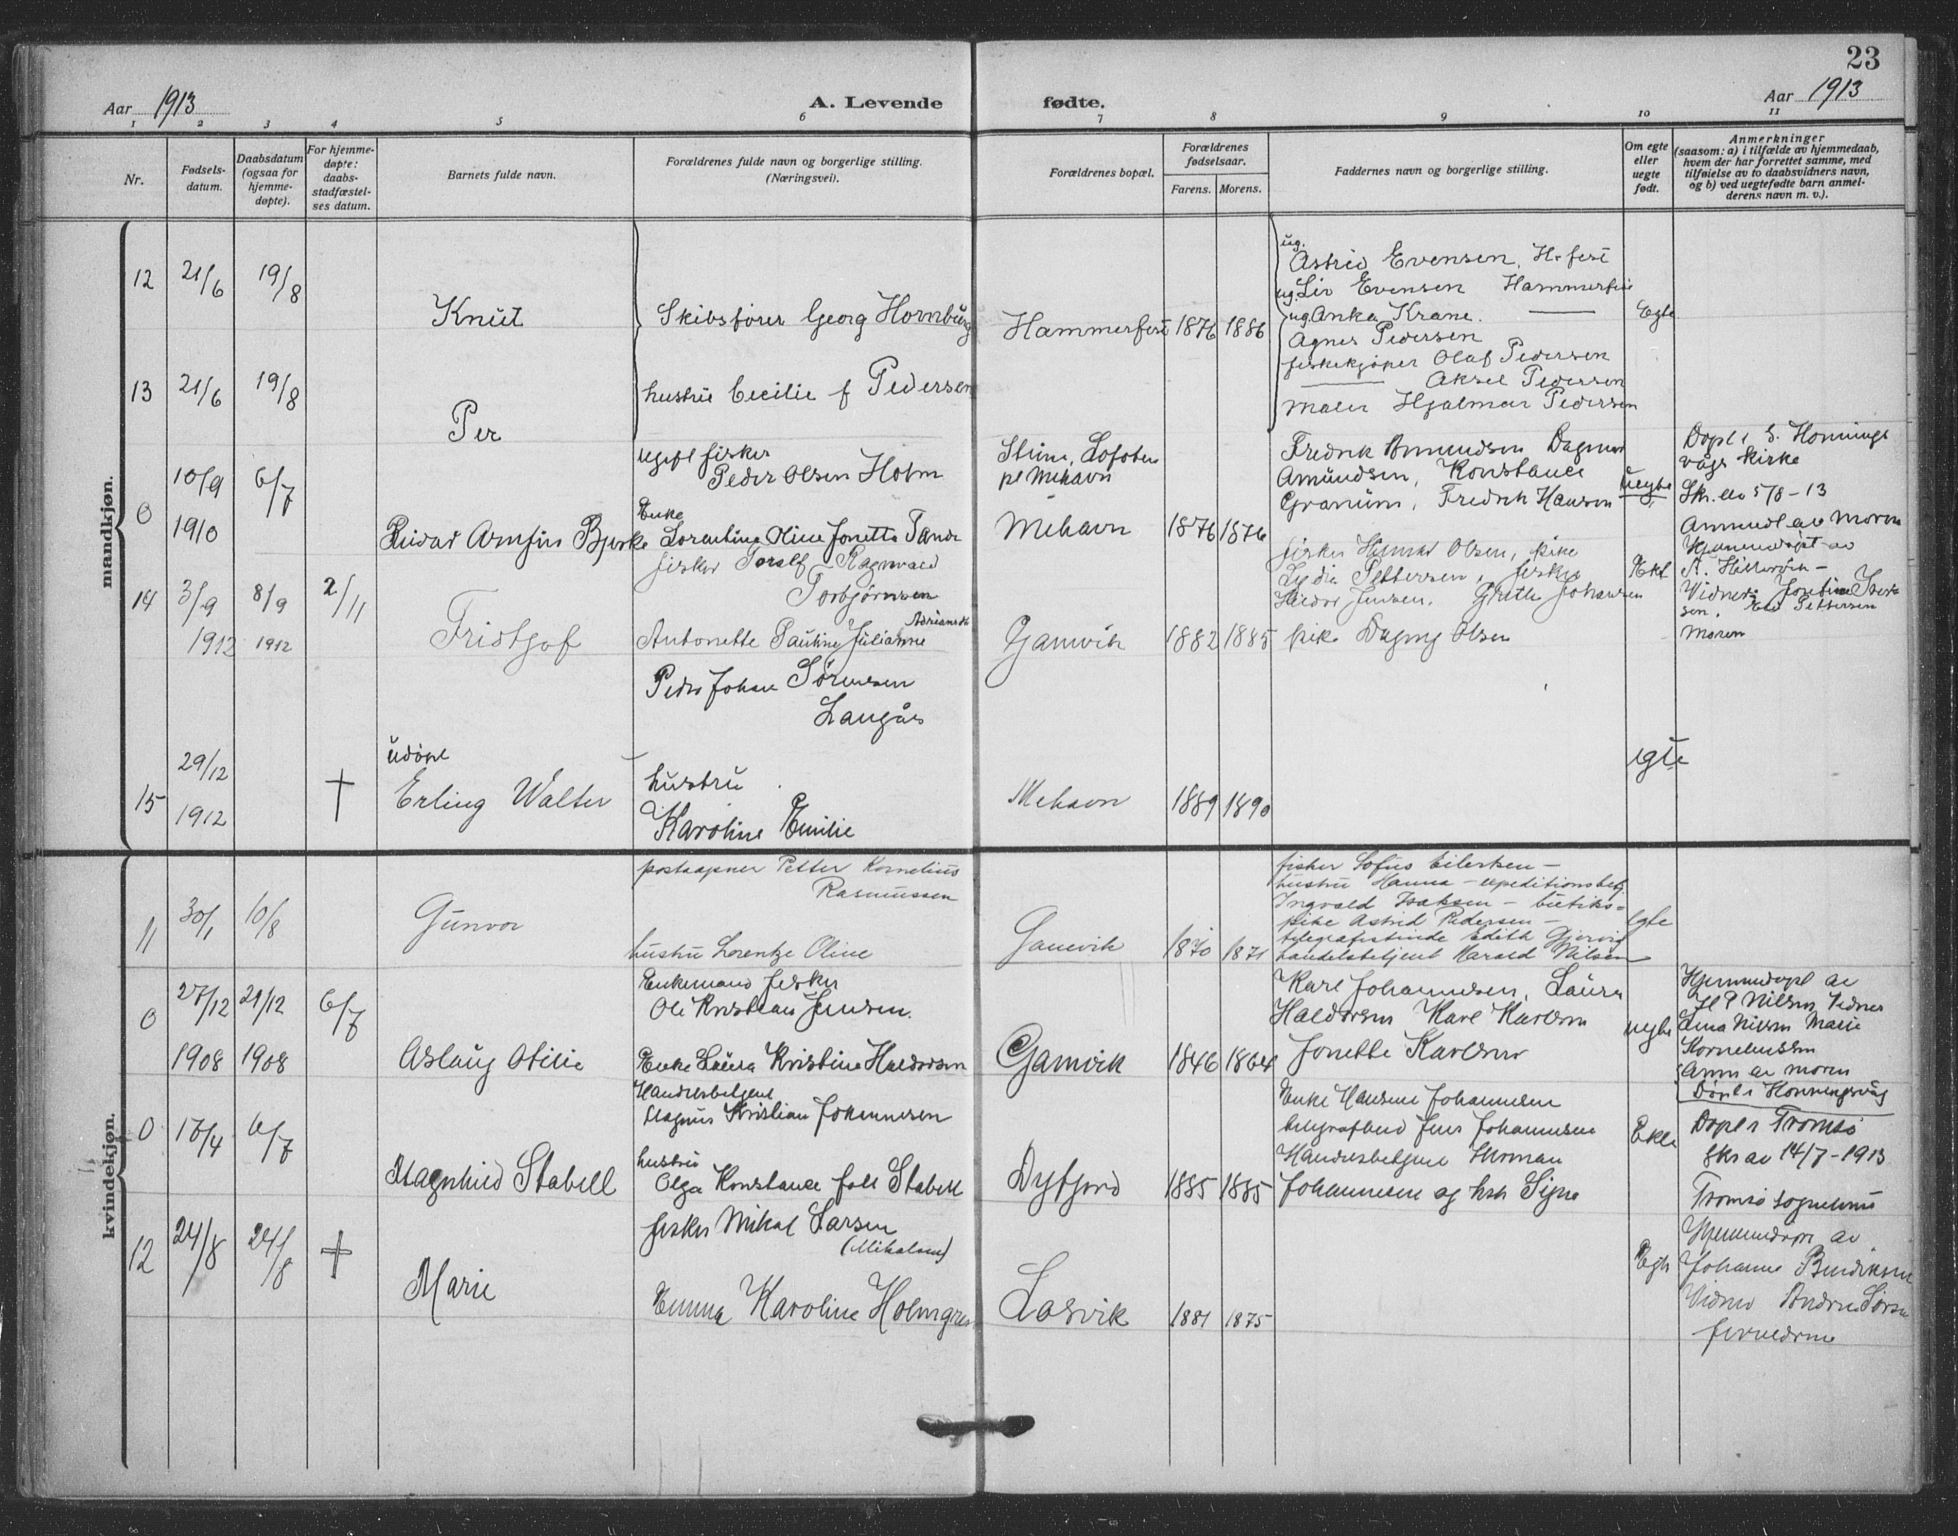 23
Aar 1913
A. Levende
fødte.
Aar 1913
1 2 3 4 5 6 7 8 9 10 11
Nr.
Fødsels-
datum.
Daabsdatum
(ogsaa for
hjemme-
døpte).
For hjemme-
døpte:
daabs-
stadfæstel-
ses datum.
Barnets fulde navn.
Forældrenes fulde navn og borgerlige stilling.
(Næringsvei).
Forældrenes bopæl.
Forældrenes
fødselsaar.
Farens. Morens.
Faddernes navn og borgerlige stilling.
Om egte
eller
uegte
født.
Anmerkninger
(saasom: a) i tilfælde av hjemmedaab,
hvem der har forrettet samme, med
tilføielse av to daabsvidners navn,
og b) ved uegtefødte barn anmel-
derens navn m. v.).
mandkjøn.
12 21/6 19/8
Knut
Skibsfører Georg Hornburg
Hammerfest 1876 1886
ug.
Astrid Evensen, H.fest
ug. Liv Evensen Hammerfest
ug. Anka Krane.
Agnes Pedersen
fiskekjøper Olaf Pedersen
Aksel Pedersen
Maler Hjalmar Pedersen
Egte
13 21/6 19/8
Per
hustru Cecilie f Pedersen
0 10/9 1910 6/7
Reidar Arnfin Bjerke
ugift fisker
Peder Olsen Holm
Enke
Lorentine Oline Jonette Tande
Lofoten
pt Mehavn
Mehavn 1876 1876
Fredrik Amundsen Dagmar
Amundsen, Konstance
Granum, Fredrik Hansen
uegte
Døpt i Honnings
vågs kirke
Skr. av 5/8-13
Anmeldt av moren
14 3/9 1912 8/9 1912 2/11
Fridtjof
fisker Toralf Ragnvald
Torbjørnsen
Antonette Pauline Julianne
Gamvik 1882 1885
fisker Olsen, pike
Lydia Pettersen, fisker
Jensen, Grethe Johansen
pike Dagny Olsen
Ekt
Hjemmedøpt av
Vidner:
Pettersen
Moren
15 29/12 1912 †
udøpt
Erling Walter
Peder Johan Sørensen
Langås
hustru
Karoline Emilie
Mehavn 1889 1890
egte
kvindekjøn.
11 30/1 10/8
Gunvor
postaapner Petter Kornelius
Rasmussen
hustru Lorentze Oline
Gamvik 1870 1871
fisker Sofus Eilertsen –
hustru Hanna – expeditionsbetj.
Ingvald Isaksen – butiks-
pike Astrid Pedersen –
telegrafistinde Edith Gjervig
handelsbetjent Harald Nilsen
Egte
0 27/12 1908 29/12 1908 6/7
Aslaug Otilie
Enkemand fisker
Ole Kristian Jensen.
Enke Laura Kristine Haldorsen
Gamvik 1846 1864
Karl Johannesen, Laura
Haldorsen Karl Karlsen
Jonette Karlsen
uegte
Hjemmedøpt av
H P Nilsen, Vidner
Lina Nilsen Marie
Korneliussen
Anm av moren
Døpt i Honningsvåg
0 17/4 6/7
Magnhild Stabell
Handelsbetjent
Magnus Kristian Johannesen
hustru
Olga Konstance født Stabell
Dyfjord 1885 1885
Enke Hansine Johannesen
telegrafbud Jens Johannesen
Handelsbetjent Herman
Johannesen og hst Signe
Ekte
Døpt i Tromsø
skr av 14/7-1913
Tromsø
12 24/8 24/8 †
Marie
fisker Mikal Larsen
(Mikalsen)
Emma Karoline Holmgren
Losvik 1881 1875
Egte
Hjemmedøpt av
Johanne Bendiksen
Vidner
forældrene